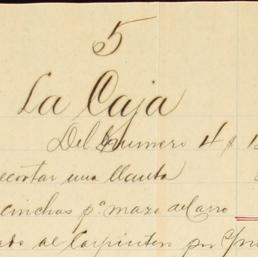 5
La Caja
Del numero 4 $ 1
recortar una llanta
cinchas pª maza de carro
al Carpintero por